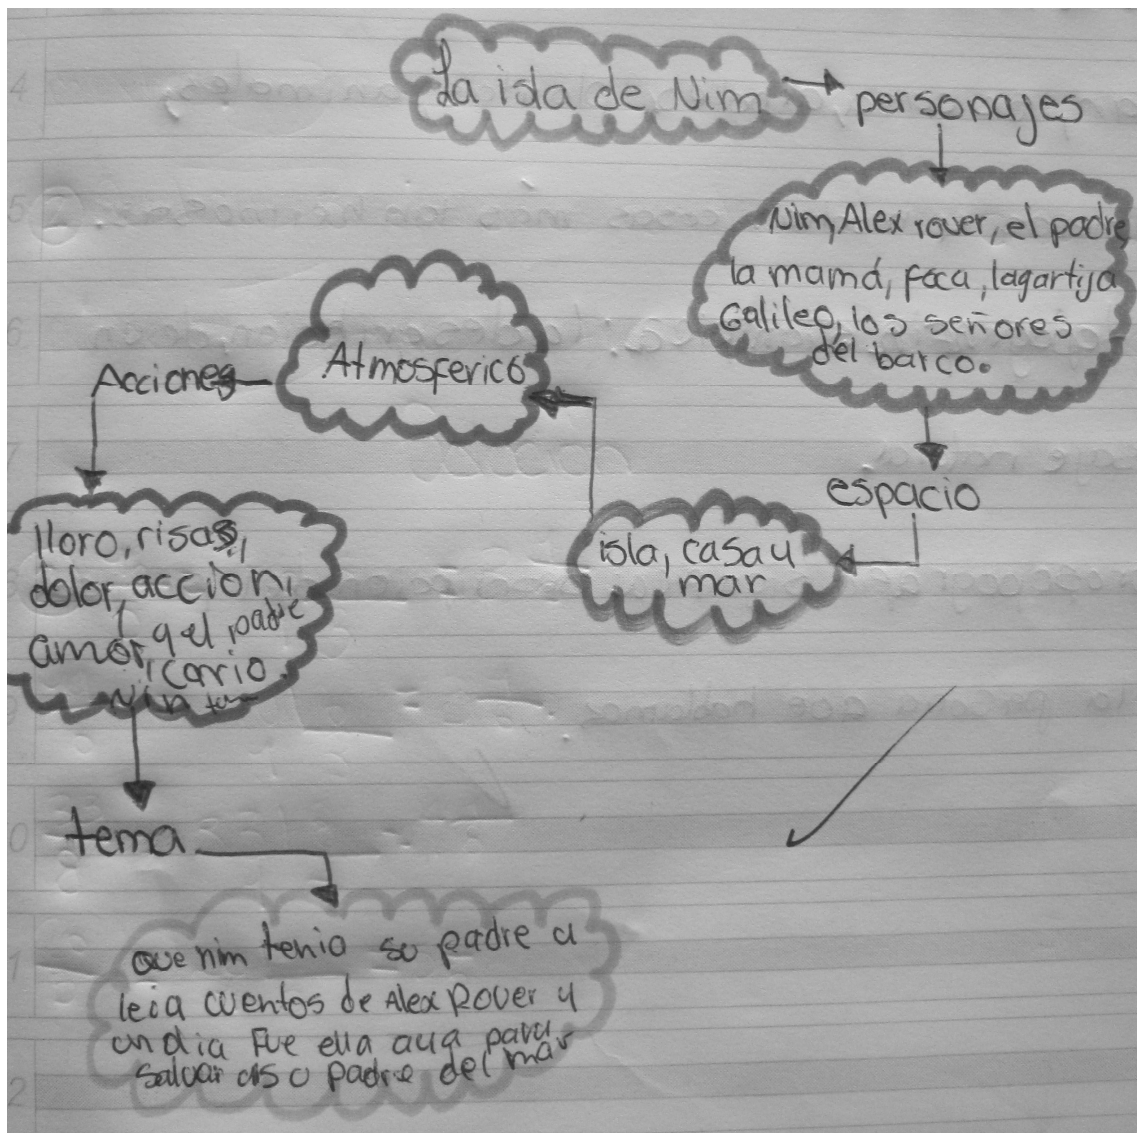 La isla de Nim
personajes
Nim, Alex rover, el padre
la mamá, foca, lagartija
Galileo, los señores
del barco.
espacio
isla, casa y
mar
Atmosferico
Acciones
lloro, risas,
dolor, acción,
amor, q el padre
cario
Nin
tema
que nim tenia su padre y
leia cuentos de Alex Rover y
un dia fue ella aya para
salvar a su padre del mar